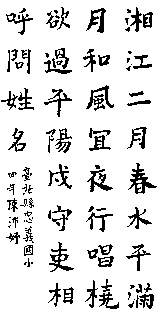 湘江二月春水平滿
月和風宜夜行唱橈
欲過平陽戍守吏相
呼問姓名
臺北縣忠義國小
四年陳沛妤